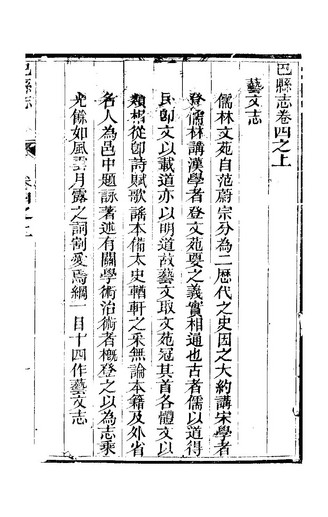 邑縣志卷四之上
藝文志
儒林文苑自范蔚宗分為二歷代之史因之大約講宋學者
登儒林講漢學者登文苑要之義實相通也古者儒以道得
民卽文以載道亦以明道故藝文取文苑冠其首各體文以
類相從卽詩賦歌謠本備太史輶軒之采無論本籍及外省
各人為邑中題詠著述有關學術治術者槪登之以為志乘
光儻如風雲月露之詞割愛焉綱一目十四作藝文志
邑縣志
卷四之上
一